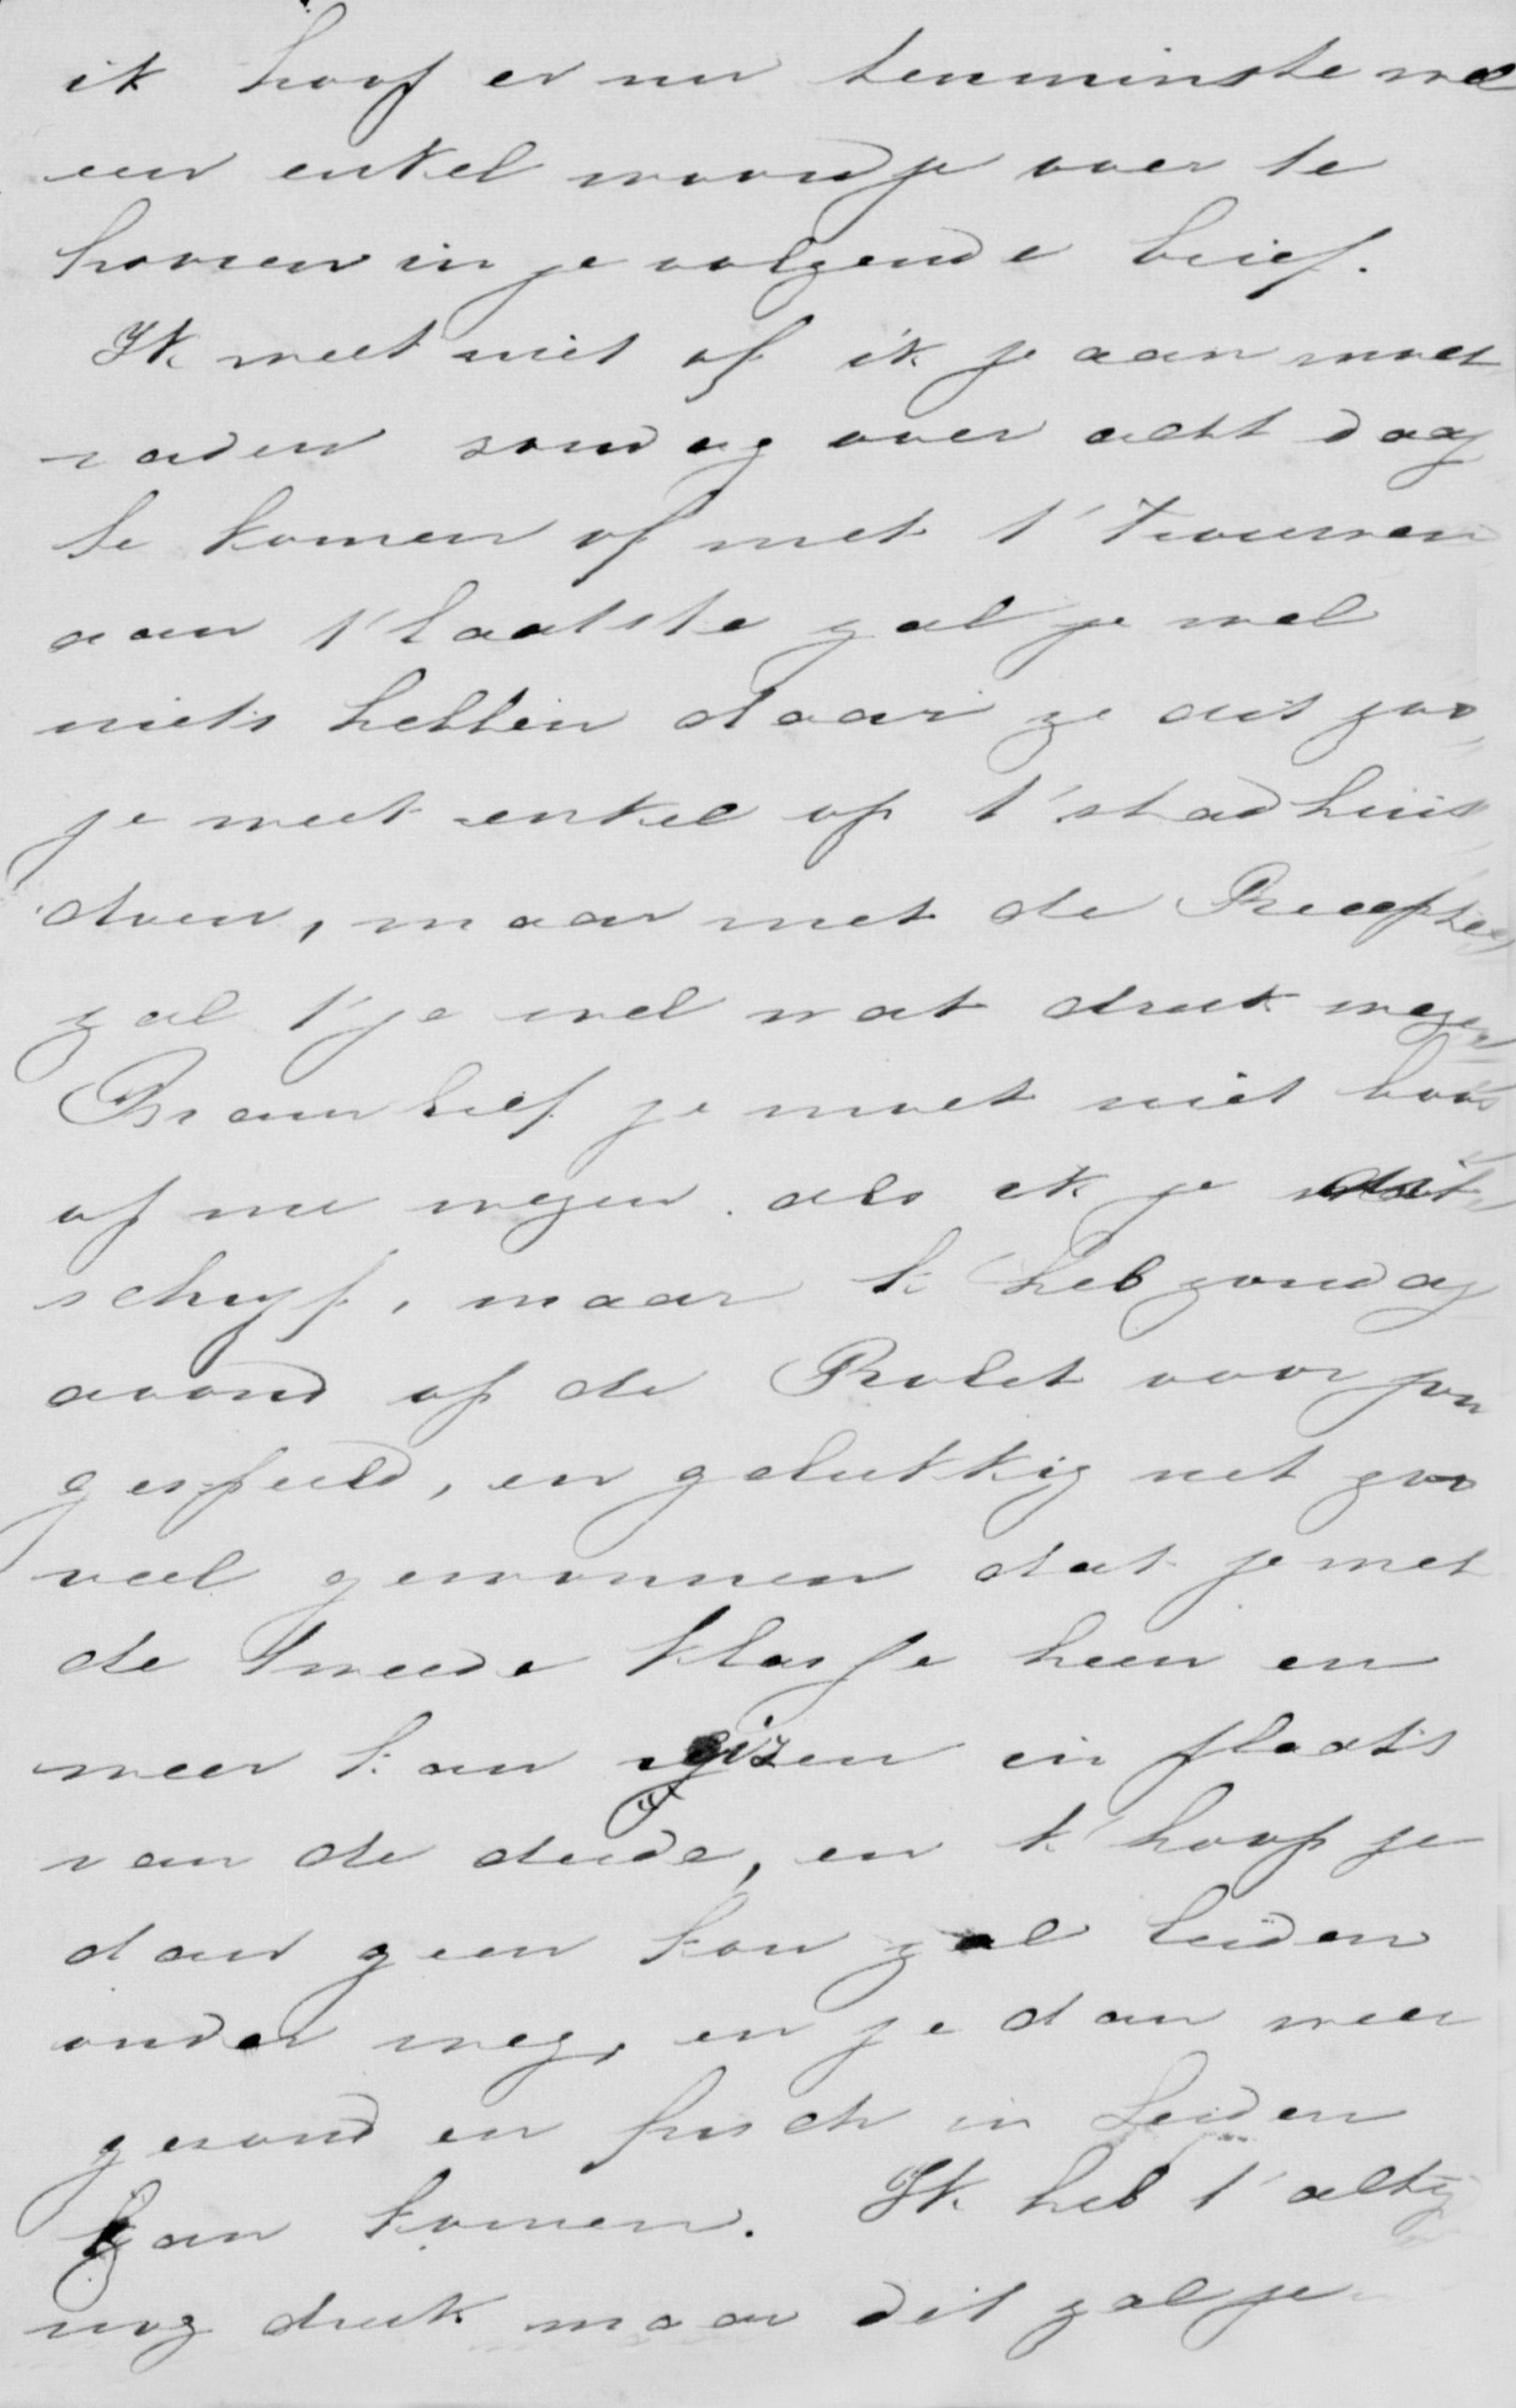 ik hoop er nu tenminste wel
een enkel woordje over te
hooren in je volgende brief.
Ik weet niet of ik je aan moet
raden zondag over acht dag
te komen of met t' trouwen
aan t' laatste zal je wel
niets hebben daar ze dit zoo
je weet enkel op t' stadhuis
doen, maar met de Receptie
zal t' je wel wat druk wezen
Bram lief je moet niet boos
op me wezen. als ik je dit
schrijf, maar k' heb zondag
avond op de Rolet voor jou
gespeeld, en gelukkig net zoo
veel gewonnen dat je met
de tweede klasse heen en
weer kan reizen in plaats
van de derde, en k' hoop je
dan geen kou zal leiden
onder weg, en je dan weer
gezond en frisch in Leiden
kan komen. Ik heb t' altij
nog druk maar dit zal je